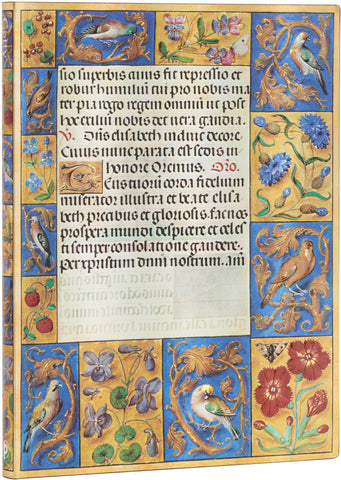 sio superbis cuius fit repressio et
robur humilium cui pro nobis ma
ter pia rogo regem omnium ut post
hoc exilium nobis det vera gaudia.
V. Dns elisabeth induit decore.
Cuius nunc parata est sedis in
honore Oremus. Oro.
Tuorum corda fidelium
miserator illustra et beate elisa
beth precibus et gloriosis. fac nos
prospera mundi despicere et celes
ti semper consolatione gaudere.
Per xpistum dnm nostrum. am